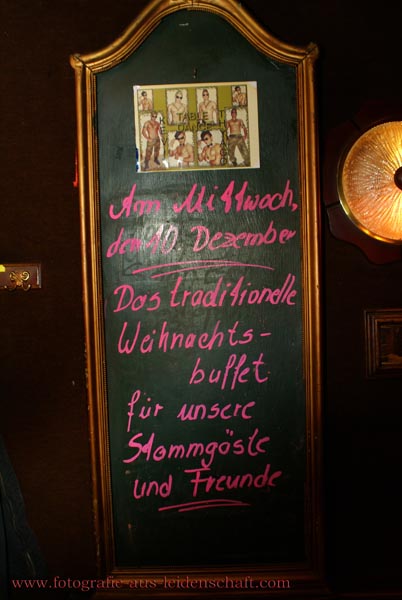 TABLE
DANCE
Am Mittwoch,
den 10. Dezember
Das traditionelle
Weihnachts-
buffet
für unsere
Stammgäste
und Freunde
www.fotografie-aus-leidenschaft.com